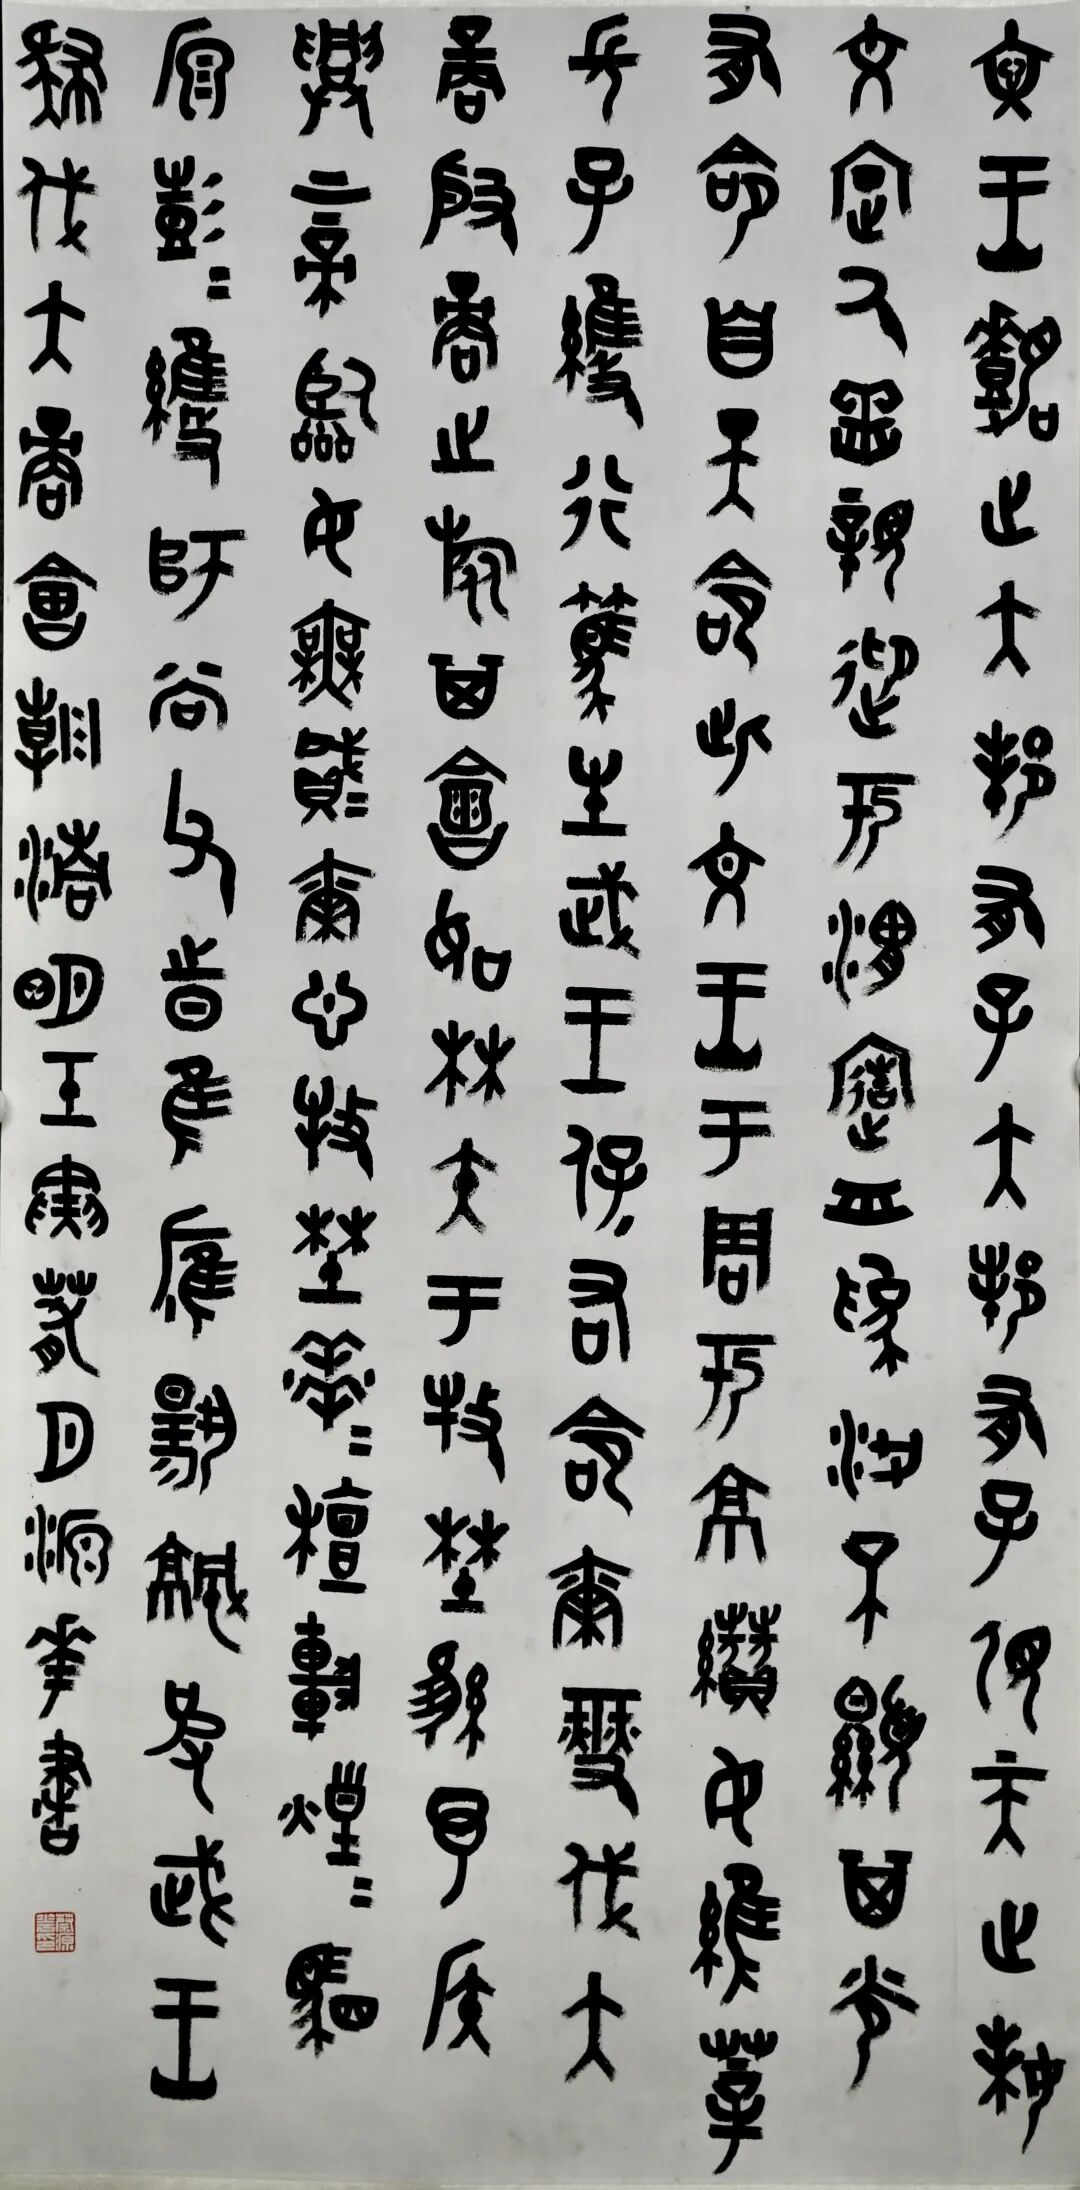 文王嘉止大邦有子大邦有子俔天之妹
文定厥祥親迎于渭造舟為梁不顯其光
有命自天命此文王于周于京纘女維莘
長子維行篤生武王保右命爾燮伐大
商殷商之旅其會如林矢于牧野維予侯
興上帝臨女無貳爾心牧野洋〻檀車煌〻駟
騵彭〻維師尚父時維鷹揚涼彼武王
肆伐大商會朝清明壬寅春月源華書